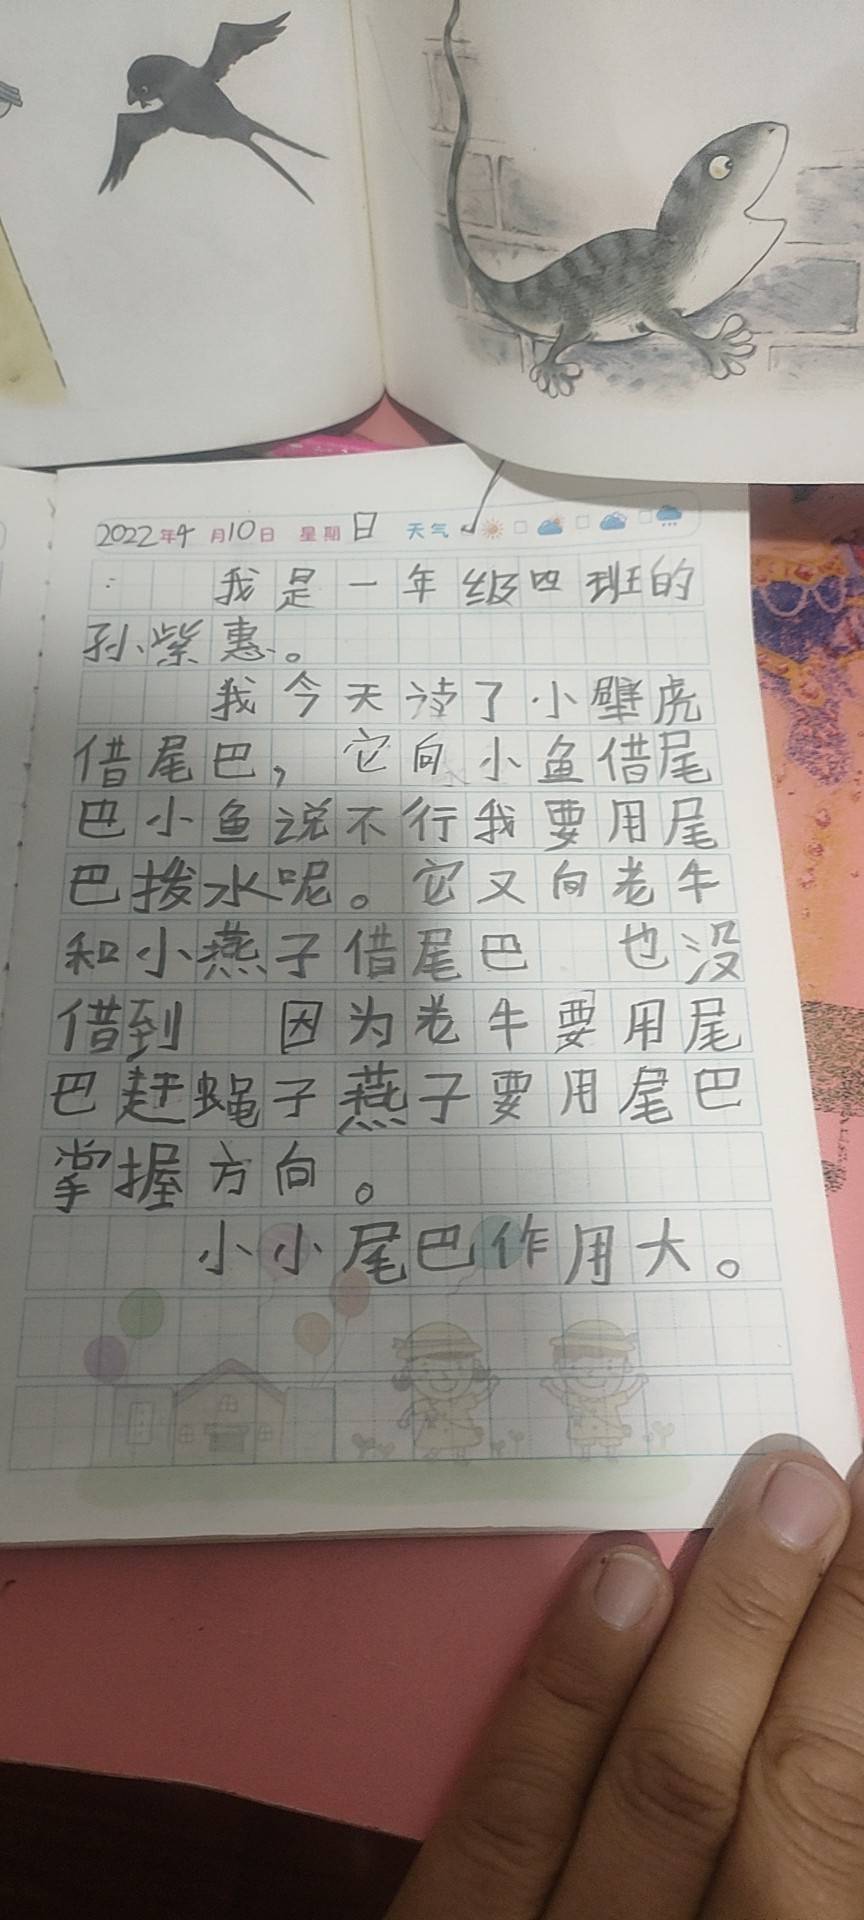 2022年4月10日 星期日 天气
: 我是一年级四班的
孙紫惠。
我今天读了小壁虎
借尾巴，它向小鱼借尾
巴小鱼说不行我要用尾
巴拨水呢。它又向老牛
和小燕子借尾巴 也没
借到 因为老牛要用尾
巴赶蝇子燕子要用尾巴
掌握方向。
小小尾巴作用大。